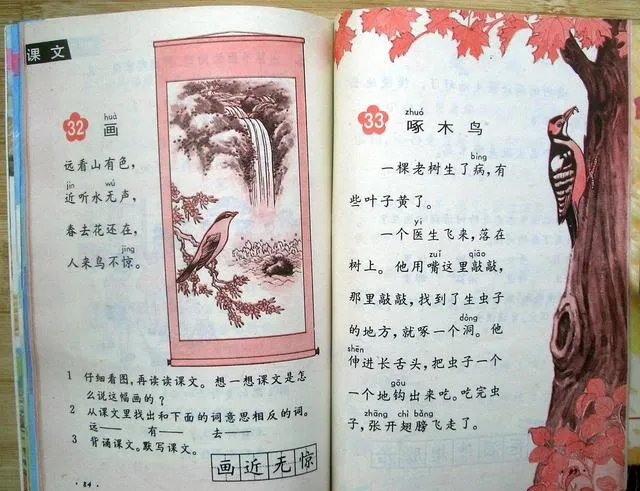 课文
huà
32 画
远看山有色，
jìn wú
近听水无声，
春去花还在，
jīng
人来鸟不惊。
1 仔细看图，再读读课文。想一想课文是怎
么说这幅画的？
2 从课文里找出和下面的词意思相反的词。
远—— 有—— 去——
3 背诵课文。默写课文。
画 近 无 惊
· 84 ·
zhuó
33 啄木鸟
bìng
一棵老树生了病，有
些叶子黄了。
yī
一个医生飞来，落在
zuǐ qiāo
树上。他用嘴这里敲敲，
那里敲敲，找到了生虫子
dòng
的地方，就啄一个洞。他
shēn
伸进长舌头，把虫子一个
gōu
一个地钩出来吃。吃完虫
zhāng chì bǎng
子，张开翅膀飞走了。